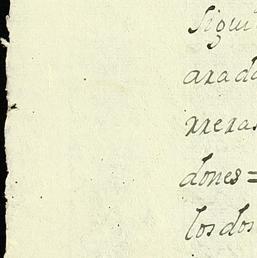 Sigui
arada
rreras
dones=
los dos